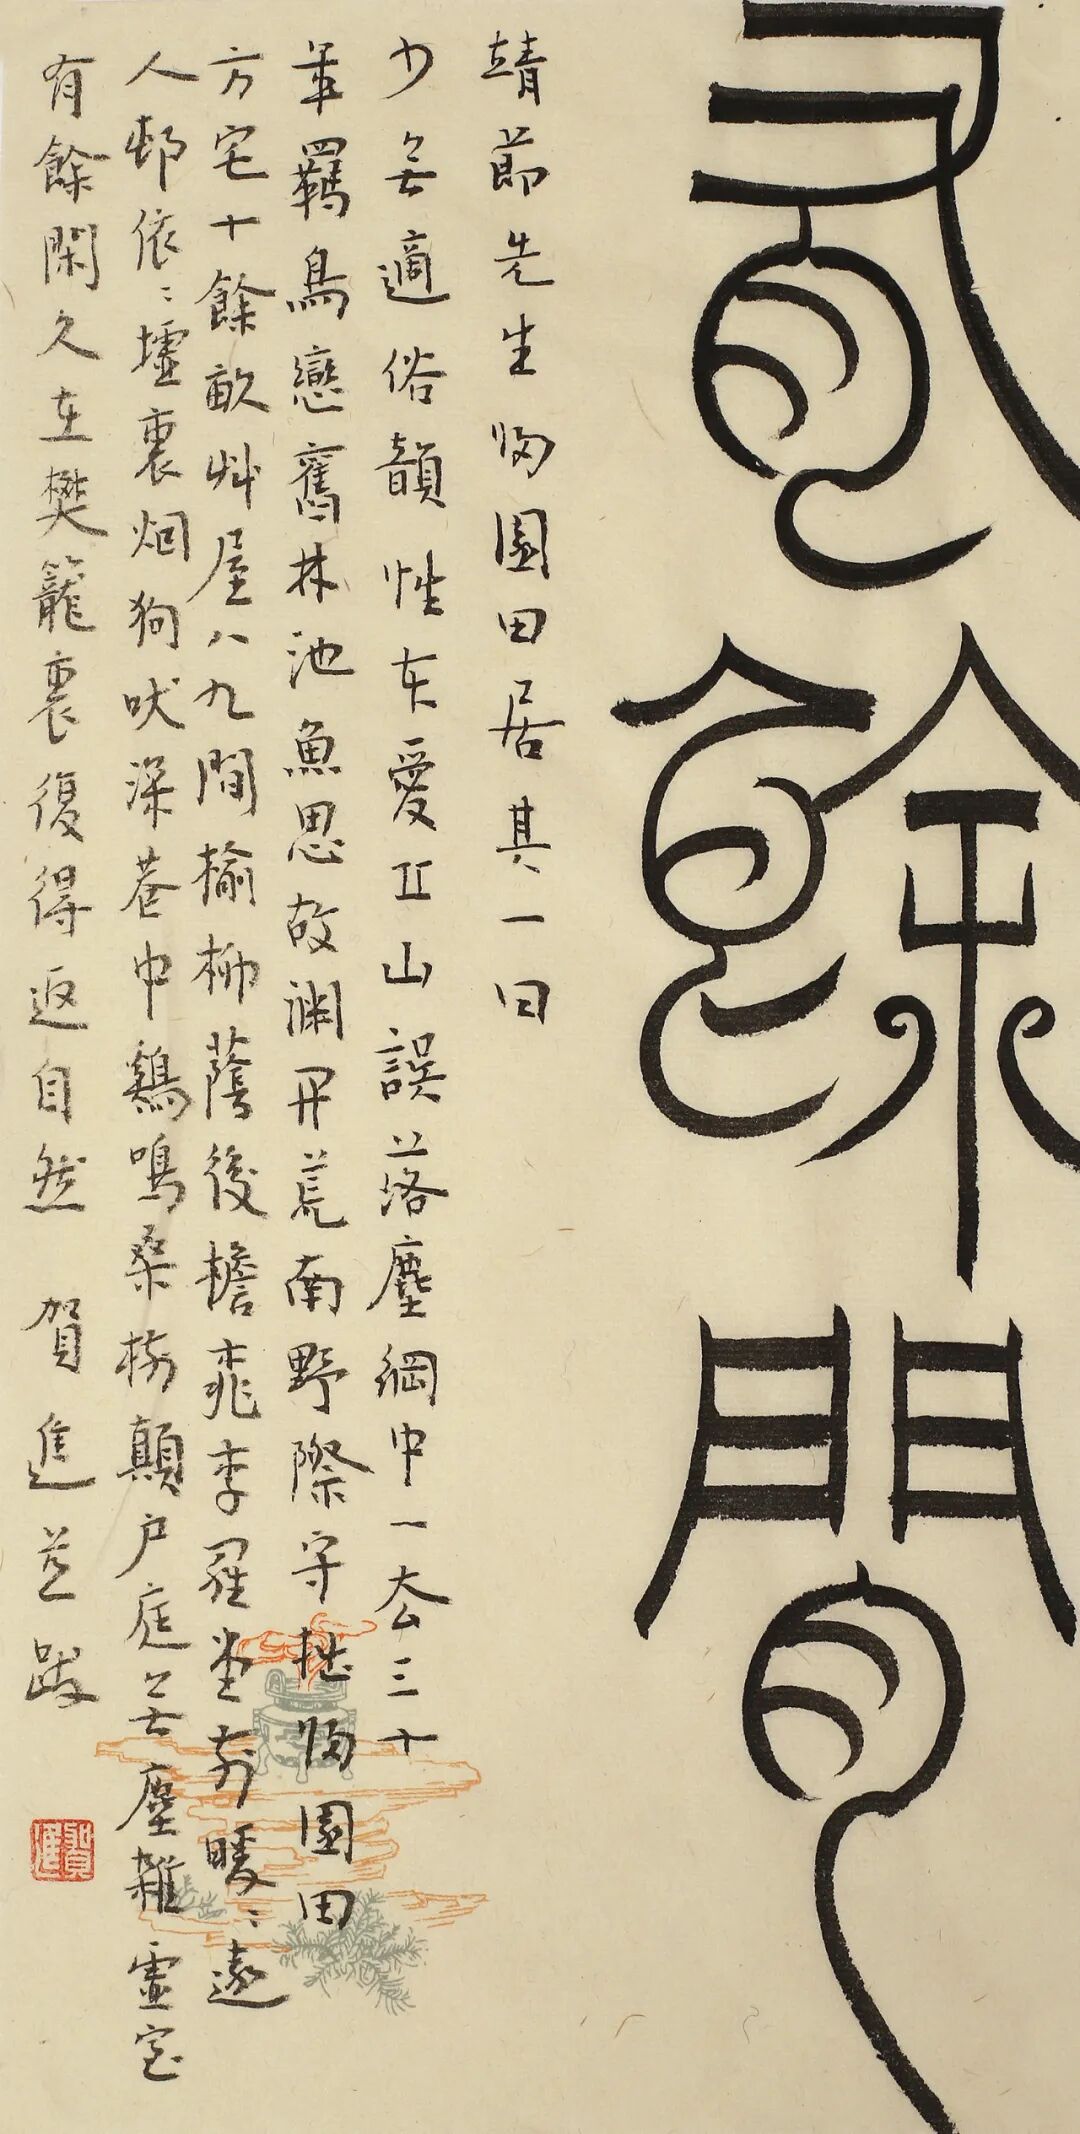 有餘閒
靖節先生歸園田居其一曰
少無適俗韻性本愛丘山誤落塵網中一去三十
年羈鳥戀舊林池魚思故淵開荒南野際守拙歸園田
方宅十餘畝艸屋八九間榆柳蔭後檐桃李羅堂前曖〻遠
人邨依〻墟裏烟狗吠深巷中鷄鳴桑樹顛户庭無塵雜虛室
有餘閑久在樊籠裏復得返自然 賀進並跋
賀進